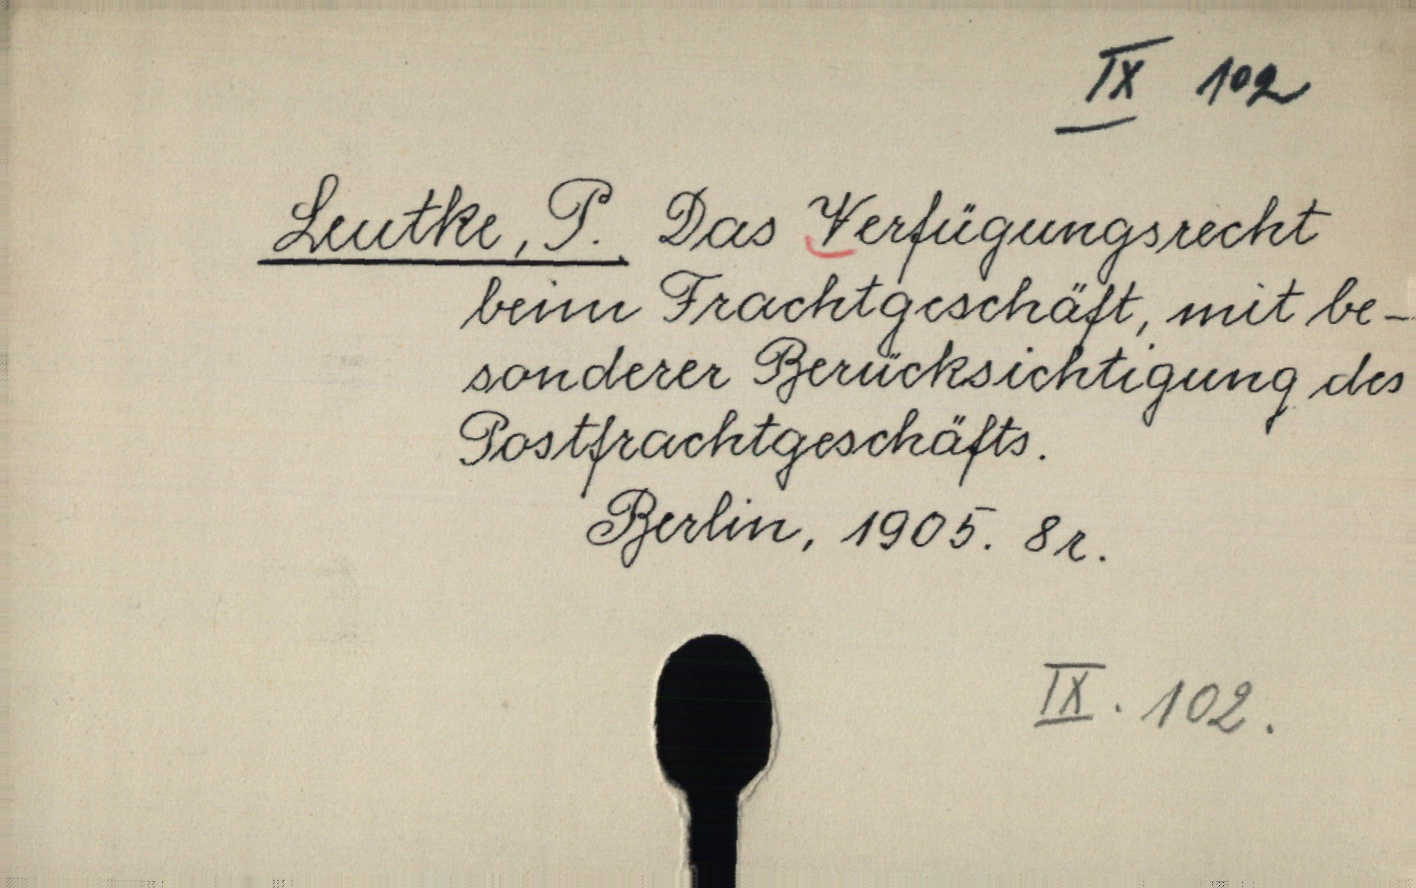 IX 102
Leutke, P. Das Verfügungsrecht
beim Frachtgeschäft, mit be-
sonderer Berücksichtigung des
Postfrachtgeschäfts.
Berlin, 1905. 8r.
IX. 102.